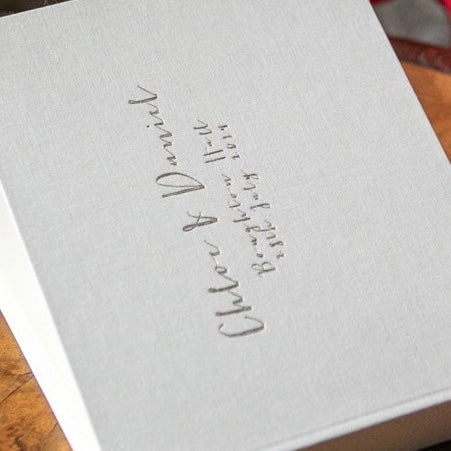 Chloe & Daniel
Boughton Hall
July 2014